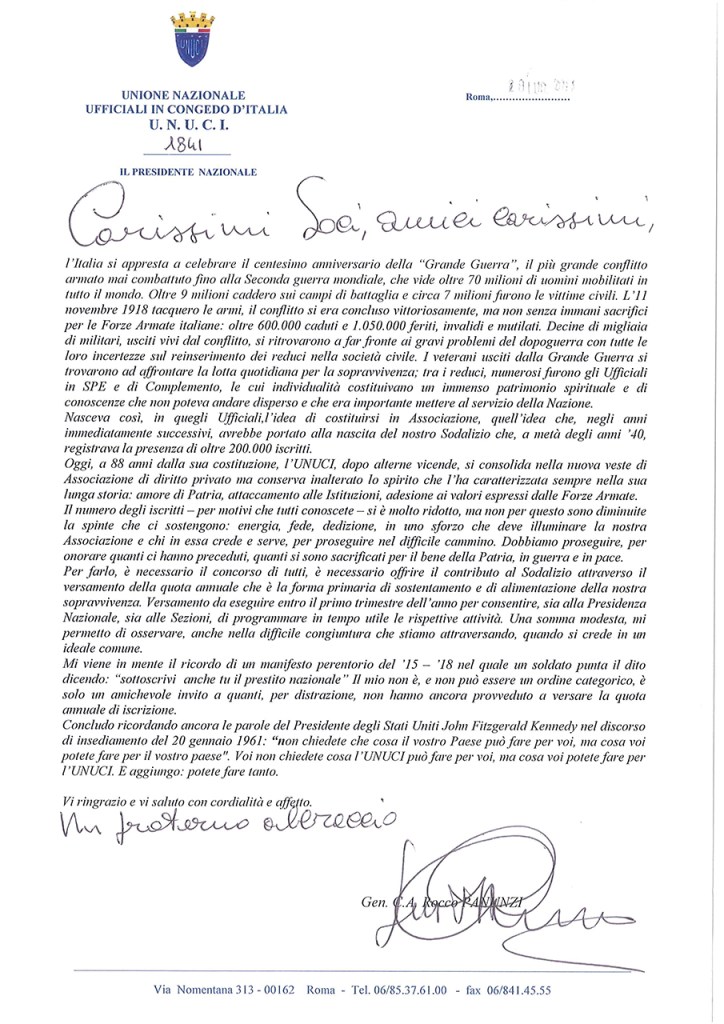 UNUCI
UNIONE NAZIONALE
UFFICIALI IN CONGEDO D'ITALIA
U. N. U. C. I.
1841
IL PRESIDENTE NAZIONALE
Roma,........................
Carissimi Soci, amici carissimi,
l'Italia si appresta a celebrare il centesimo anniversario della "Grande Guerra", il più grande conflitto
armato mai combattuto fino alla Seconda guerra mondiale, che vide oltre 70 milioni di uomini mobilitati in
tutto il mondo. Oltre 9 milioni caddero sui campi di battaglia e circa 7 milioni furono le vittime civili. L'11
novembre 1918 tacquero le armi, il conflitto si era concluso vittoriosamente, ma non senza immani sacrifici
per le Forze Armate italiane: oltre 600.000 caduti e 1.050.000 feriti, invalidi e mutilati. Decine di migliaia
di militari, usciti vivi dal conflitto, si ritrovarono a far fronte ai gravi problemi del dopoguerra con tutte le
loro incertezze sul reinserimento dei reduci nella società civile. I veterani usciti dalla Grande Guerra si
trovarono ad affrontare la lotta quotidiana per la sopravvivenza; tra i reduci, numerosi furono gli Ufficiali
in SPE e di Complemento, le cui individualità costituivano un immenso patrimonio spirituale e di
conoscenze che non poteva andare disperso e che era importante mettere al servizio della Nazione.
Nasceva così, in quegli Ufficiali,l'idea di costituirsi in Associazione, quell'idea che, negli anni
immediatamente successivi, avrebbe portato alla nascita del nostro Sodalizio che, a metà degli anni '40,
registrava la presenza di oltre 200.000 iscritti.
Oggi, a 88 anni dalla sua costituzione, l'UNUCI, dopo alterne vicende, si consolida nella nuova veste di
Associazione di diritto privato ma conserva inalterato lo spirito che l'ha caratterizzata sempre nella sua
lunga storia: amore di Patria, attaccamento alle Istituzioni, adesione ai valori espressi dalle Forze Armate.
Il numero degli iscritti – per motivi che tutti conoscete – si è molto ridotto, ma non per questo sono diminuite
la spinte che ci sostengono: energia, fede, dedizione, in uno sforzo che deve illuminare la nostra
Associazione e chi in essa crede e serve, per proseguire nel difficile cammino. Dobbiamo proseguire, per
onorare quanti ci hanno preceduti, quanti si sono sacrificati per il bene della Patria, in guerra e in pace.
Per farlo, è necessario il concorso di tutti, è necessario offrire il contributo al Sodalizio attraverso il
versamento della quota annuale che è la forma primaria di sostentamento e di alimentazione della nostra
sopravvivenza. Versamento da eseguire entro il primo trimestre dell'anno per consentire, sia alla Presidenza
Nazionale, sia alle Sezioni, di programmare in tempo utile le rispettive attività. Una somma modesta, mi
permetto di osservare, anche nella difficile congiuntura che stiamo attraversando, quando si crede in un
ideale comune.
Mi viene in mente il ricordo di un manifesto perentorio del '15 – '18 nel quale un soldato punta il dito
dicendo: "sottoscrivi anche tu il prestito nazionale" Il mio non è, e non può essere un ordine categorico, è
solo un amichevole invito a quanti, per distrazione, non hanno ancora provveduto a versare la quota
annuale di iscrizione.
Concludo ricordando ancora le parole del Presidente degli Stati Uniti John Fitzgerald Kennedy nel discorso
di insediamento del 20 gennaio 1961: "non chiedete che cosa il vostro Paese può fare per voi, ma cosa voi
potete fare per il vostro paese". Voi non chiedete cosa l'UNUCI può fare per voi, ma cosa voi potete fare per
l'UNUCI. E aggiungo: potete fare tanto.
Vi ringrazio e vi saluto con cordialità e affetto.
Un fraterno abbraccio
Gen. C.A. Rocco PANUNZI
Via Nomentana 313 - 00162 Roma - Tel. 06/85.37.61.00 - fax 06/841.45.55